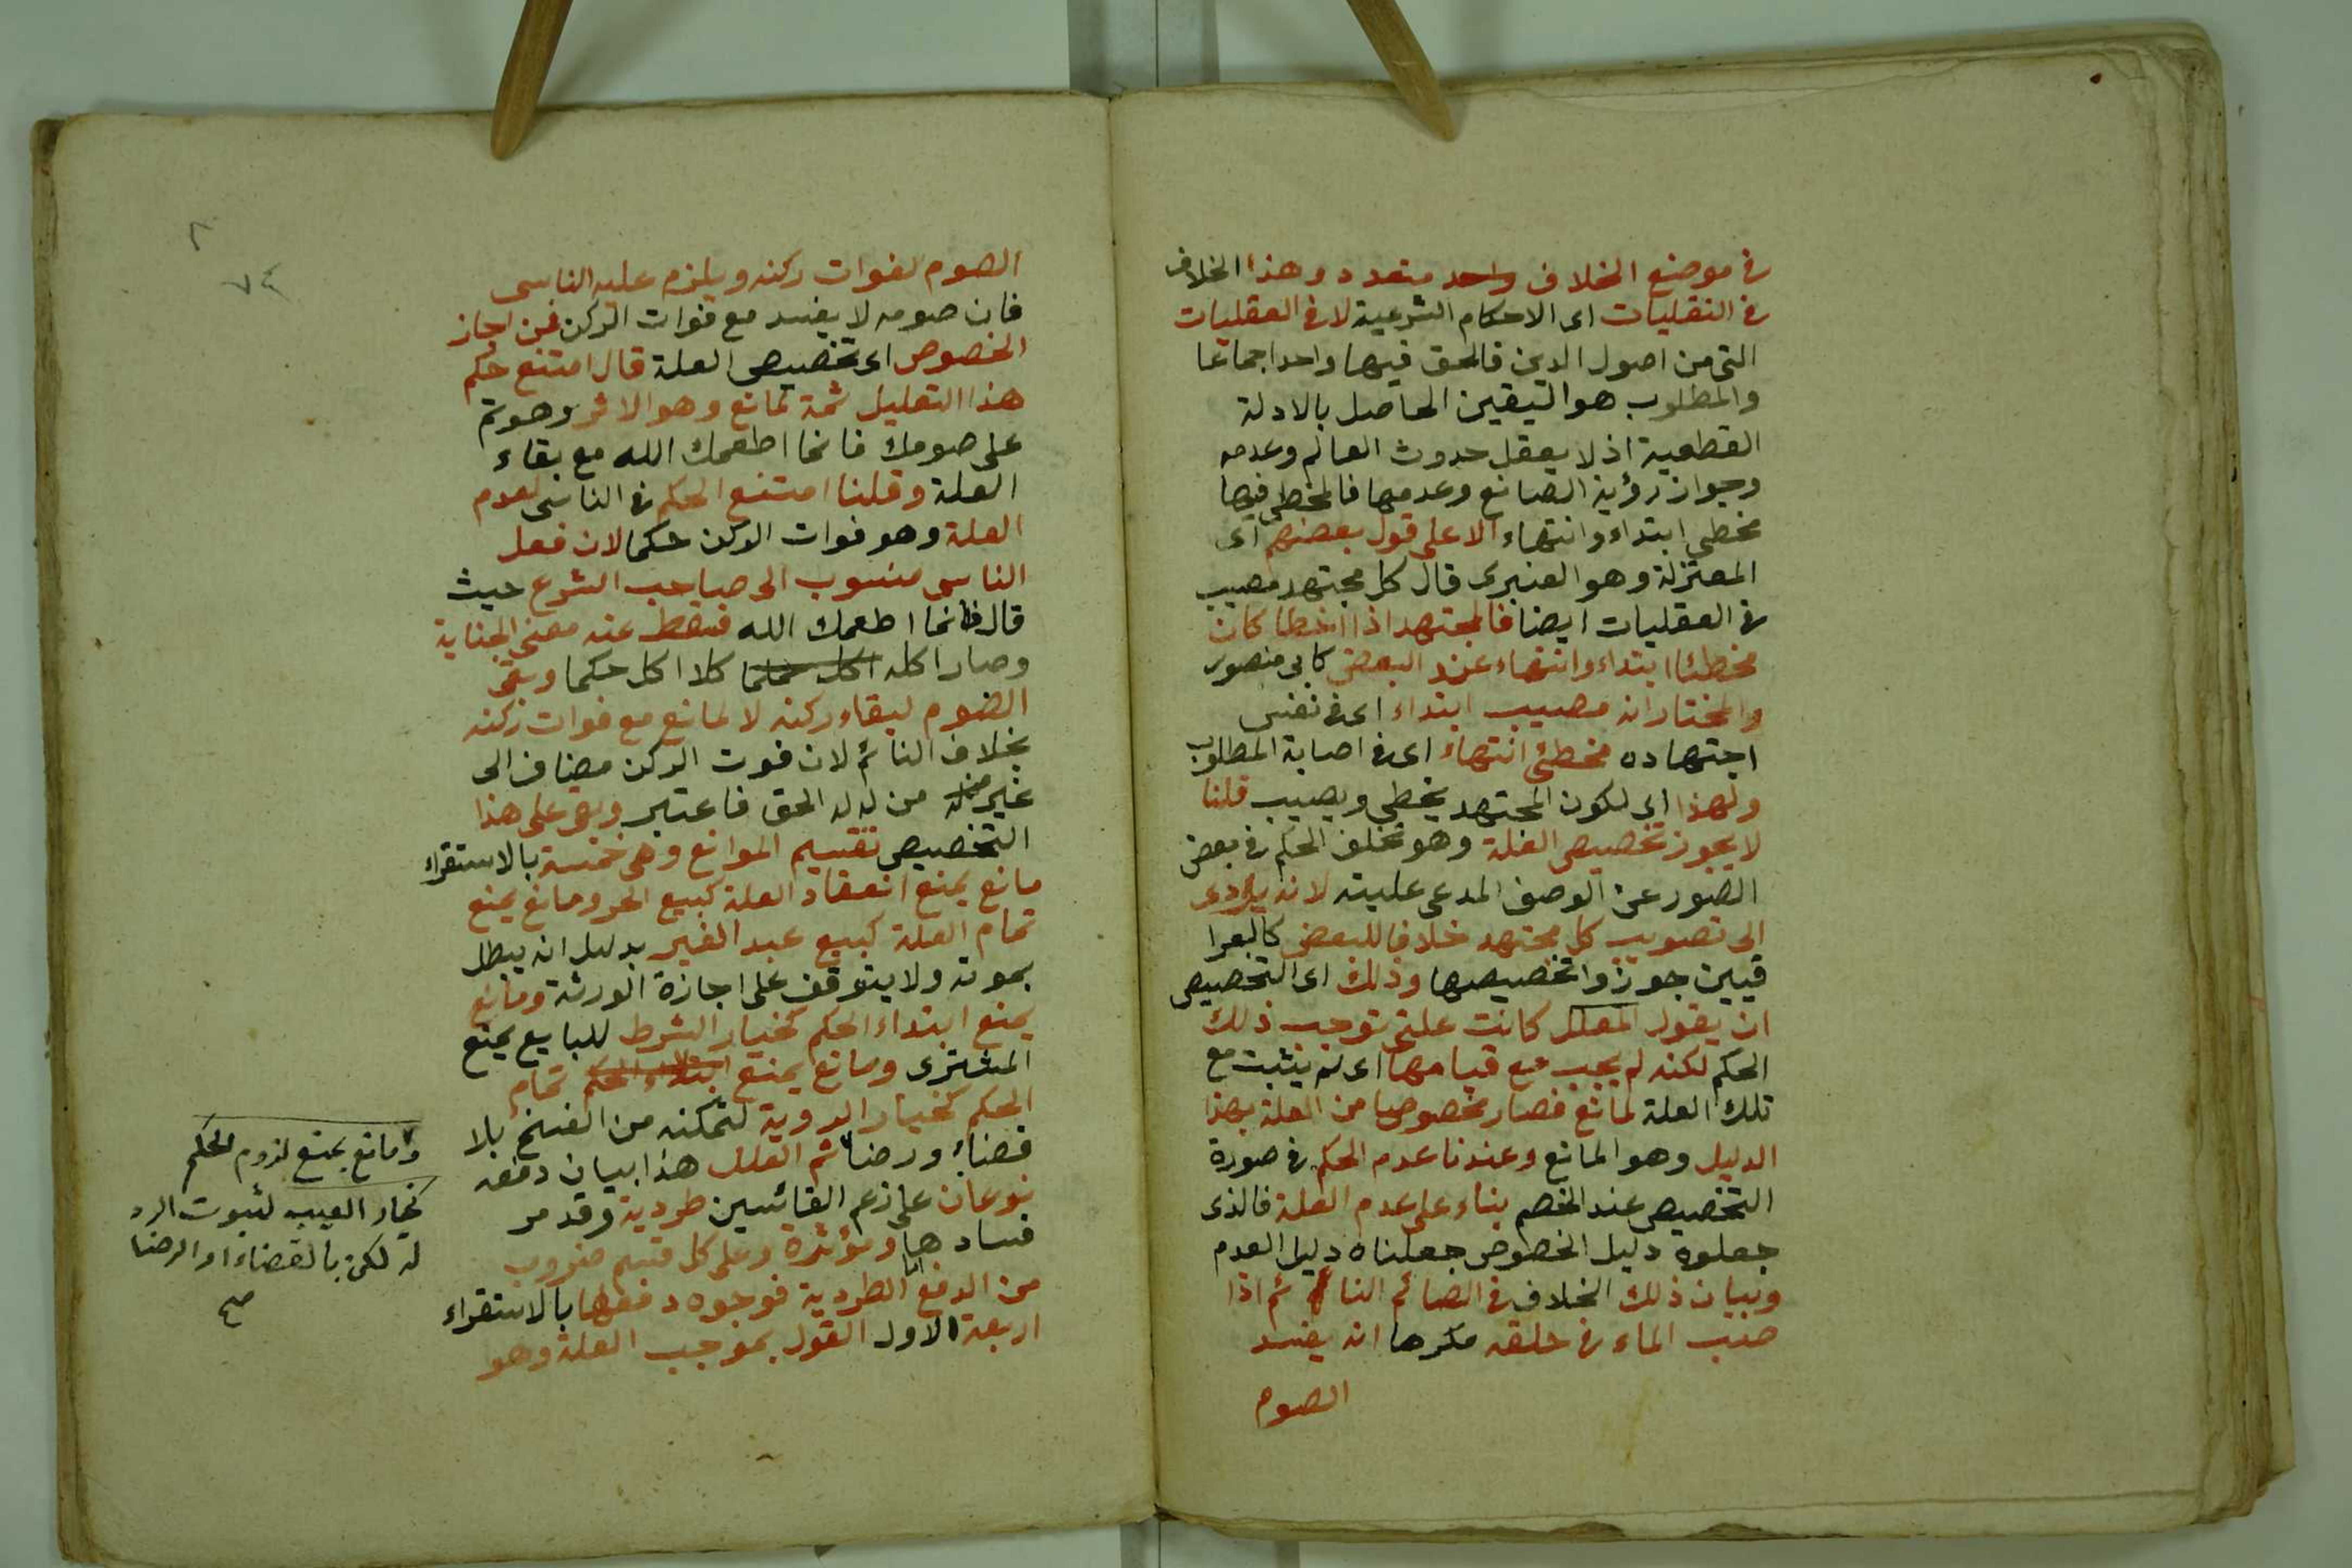 في موضع الخلاف واحد متعدد وهذا الخلاف
في النقليات اى الاحكام الشرعية لا في العقليات
التى من اصول الدين فالحق فيها واحد اجماعا
والمطلوب هو اليقين الحاصل بالادلة
القطعية اذ لا يعقل حدوث العالم وعدمه
وجواز رؤية الصانع وعدمها فالمخطى فيها
مخطى ابتداء وانتهاء الا على قول بعضهم اى
المعتزلة وهو العنبرى قال كل مجتهد مصيب
في العقليات ايضا فالمجتهد اذا اخطا كان
مخطئا ابتداء وانتهاء عند البعض كابى منصور
والمختار انه مصيب ابتداء اى في نفس
اجتهاده مخطئ انتهاء اى في اصابة المطلوب
ولهذا اى لكون المجتهد يخطى ويصيب قلنا
لا يجوز تخصيص العلة وهو تخلف الحكم في بعض
الصور عن الوصف المدعى عليته لانه يؤدى
الى تصويب كل مجتهد خلافا للبعض كالعرا
قيين جوزوا تخصيصها وذلك اى التخصيص
ان يقول المعلل كانت علتى توجب ذلك
الحكم لكنه لم يجب مع قيامها اى لم يثبت مع
تلك العلة لمانع فصار مخصوصا من العلة بهذا
الدليل وهو المانع وعندنا عدم الحكم في صورة
التخصيص عند الخصم بناء على عدم العلة فالذى
جعلوه دليل الخصوص جعلناه دليل العدم
وبيان ذلك الخلاف في الصائم النائم اذا
صب الماء في حلقه مكرها انه يفسد
الصوم
٧٤
الصوم لفوات ركنه ويلزم عليه الناسى
فان صومه لا يفسد مع فوات الركن فمن اجاز
الخصوص اى تخصيص العلة قال امتنع حكم
هذا التعليل ثمة لمانع وهو الاثر وهو تم
على صومك فانما اطعمك الله مع بقاء
العلة وقلنا امتنع الحكم في الناسى لعدم
العلة وهو فوات الركن حكما لان فعل
الناسى منسوب الى صاحب الشرع حيث
قال فانما اطعمك الله فسقط عنه معنى الجناية
وصار اكله اكل كلا اكل حكما وبقى
الصوم لبقاء ركنه لا لمانع مع فوات ركنه
بخلاف النائم لان فوت الركن مضاف الى
غير من له الحق فاعتبر وبنى على هذا
التخصيص تقسيم الموانع وهى خمسة بالاستقراء
مانع يمنع انعقاد العلة كبيع الحر ومانع يمنع
تمام العلة كبيع عبد الغير بدليل انه يبطل
بموته ولا يتوقف على اجازة الورثة ومانع
يمنع ابتداء الحكم كخيار الشرط للبايع يمنع
المشترى ومانع يمنع ابتداء الحكم تمام
الحكم كخيار الروية لتمكنه من الفسخ بلا
قضاء ورضا ثم العلل هذا بيان دفعه
نوعان على زعم القائسين طردية وقد مر
فسادها ومؤثرة وعلى كل قسم ضروب
من الدفع اما الطردية فوجوه دفعها بالاستقراء
اربعة الاول القول بموجب العلة وهو
ومانع يمنع لزوم الحكم
كخيار العيب لثبوت الرد
له لكن بالقضاء او الرضا
صح